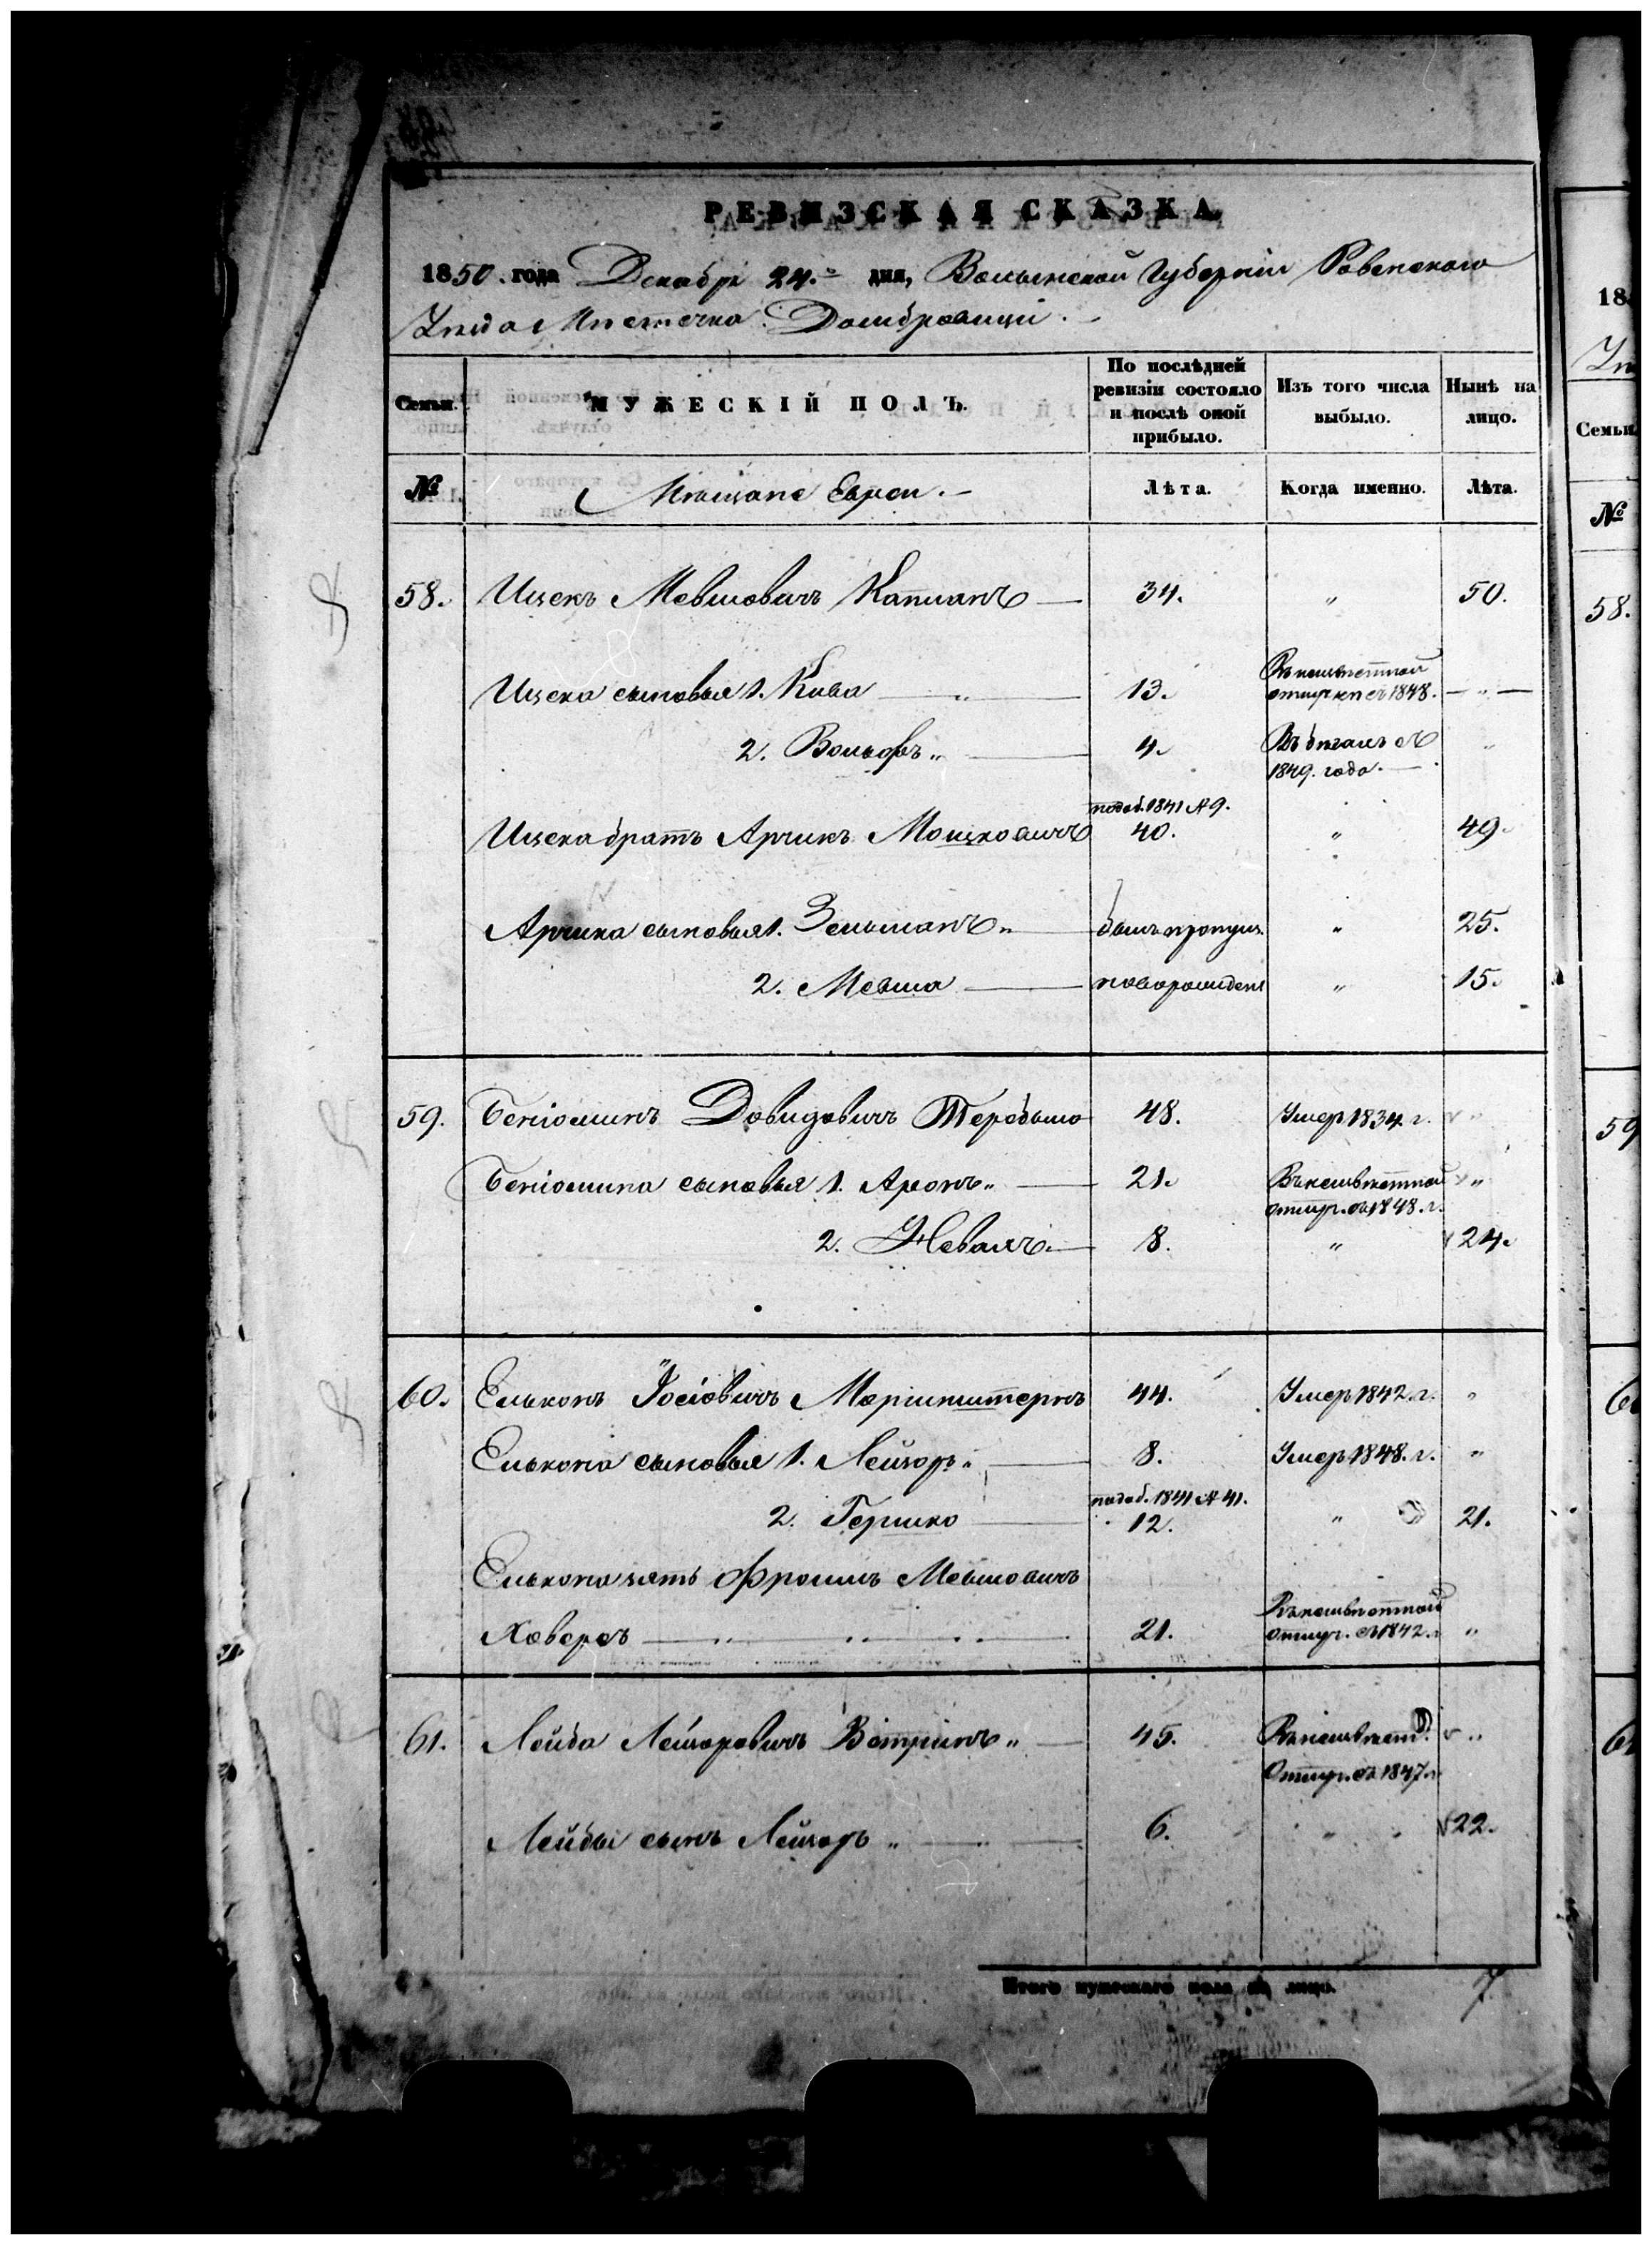 РЕВИЗСКАЯ СКАЗКА
1850. года Декабря 24.го дня, Волынской Губерніи Ровенского
Уѣзда Мѣстечка Домбровици.
Семьи. МУЖЕСКІЙ ПОЛЪ. По послѣдней ревизіи состояло и послѣ оной прибыло. Изъ того числа выбыло. Нынѣ на лицо.
№ Мѣщане Евреи. Лѣта. Когда именно. Лѣта.
58. Ицекъ Мевшовичъ Капланъ 34. " 50.
Ицека сыновья 1. Кива " 13. Въ безвѣстной отлучкѣ съ 1848. "
2. Вольфъ " 4. Въ бѣгахъ съ 1849. года. "
подоб. 1841 № 9.
Ицека братъ Арчикъ Мошковичъ 40. " 49.
Арчика сыновья 1. Зельманъ " былъ пропущ. " 25.
2. Мевша новорожденъ " 15.
59. Беніоминъ Довидовичъ Теребыло 48. Умеръ 1834. г. "
Беніомина сыновья 1. Аронъ " 21. Въ безвѣстной отлуч. съ 1848. г. "
2. 8. " 24.
60. Ельконъ Іосіовичъ 44. Умеръ 1842. г. "
Елькона сыновья 1. Лейзоръ " 8. Умеръ 1848. г. "
подоб. 1841 № 41.
2. Гершко 12. " 21.
Елькона зять Фроимъ Мевшовичъ
Ховеръ " " " 21. Въ безвѣстной отлуч. съ 1842. г. "
61. Лейба Лейзоровичъ " 45. Въ безвѣст. отлуч. съ 1847. г. "
Лейбы сынъ Лейзоръ " 6. " 22.
Итого мужескаго пола на лицо. 7
18
Семьи
№
58.
59